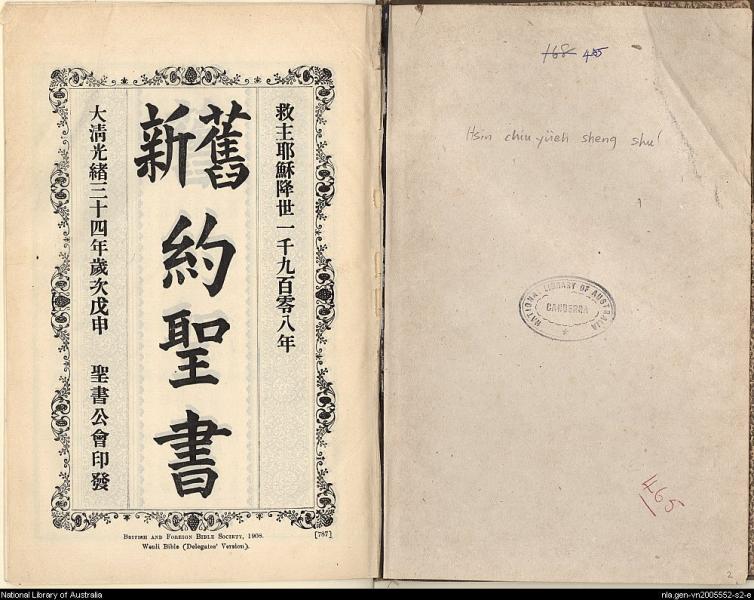 救主耶穌降世一千九百零八年
舊新
約聖書
大清光緒三十四年歲次戊申 聖書公會印發
BRITISH AND FOREIGN BIBLE SOCIETY, 1908.
[787]
Wenli Bible (Delegates' Version).
168 465
Hsin chiu-yüeh sheng shu
NATIONAL LIBRARY OF AUSTRALIA
CANBERRA
465
2
National Library of Australia
nla.gen-vn2005552-s2-e